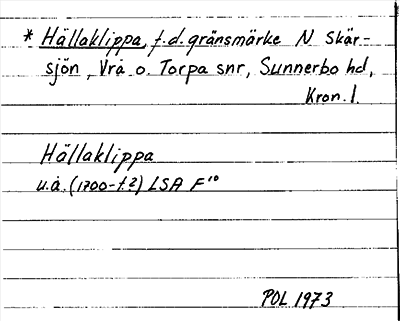 * Hällaklippa, f.d. gränsmärke N Skär-
sjön, Vrå o. Torpa snr, Sunnerbo hd,
Kron. l.
Hällaklippa
u.å. (1700-t.?) LSA F¹⁰
POL 1973